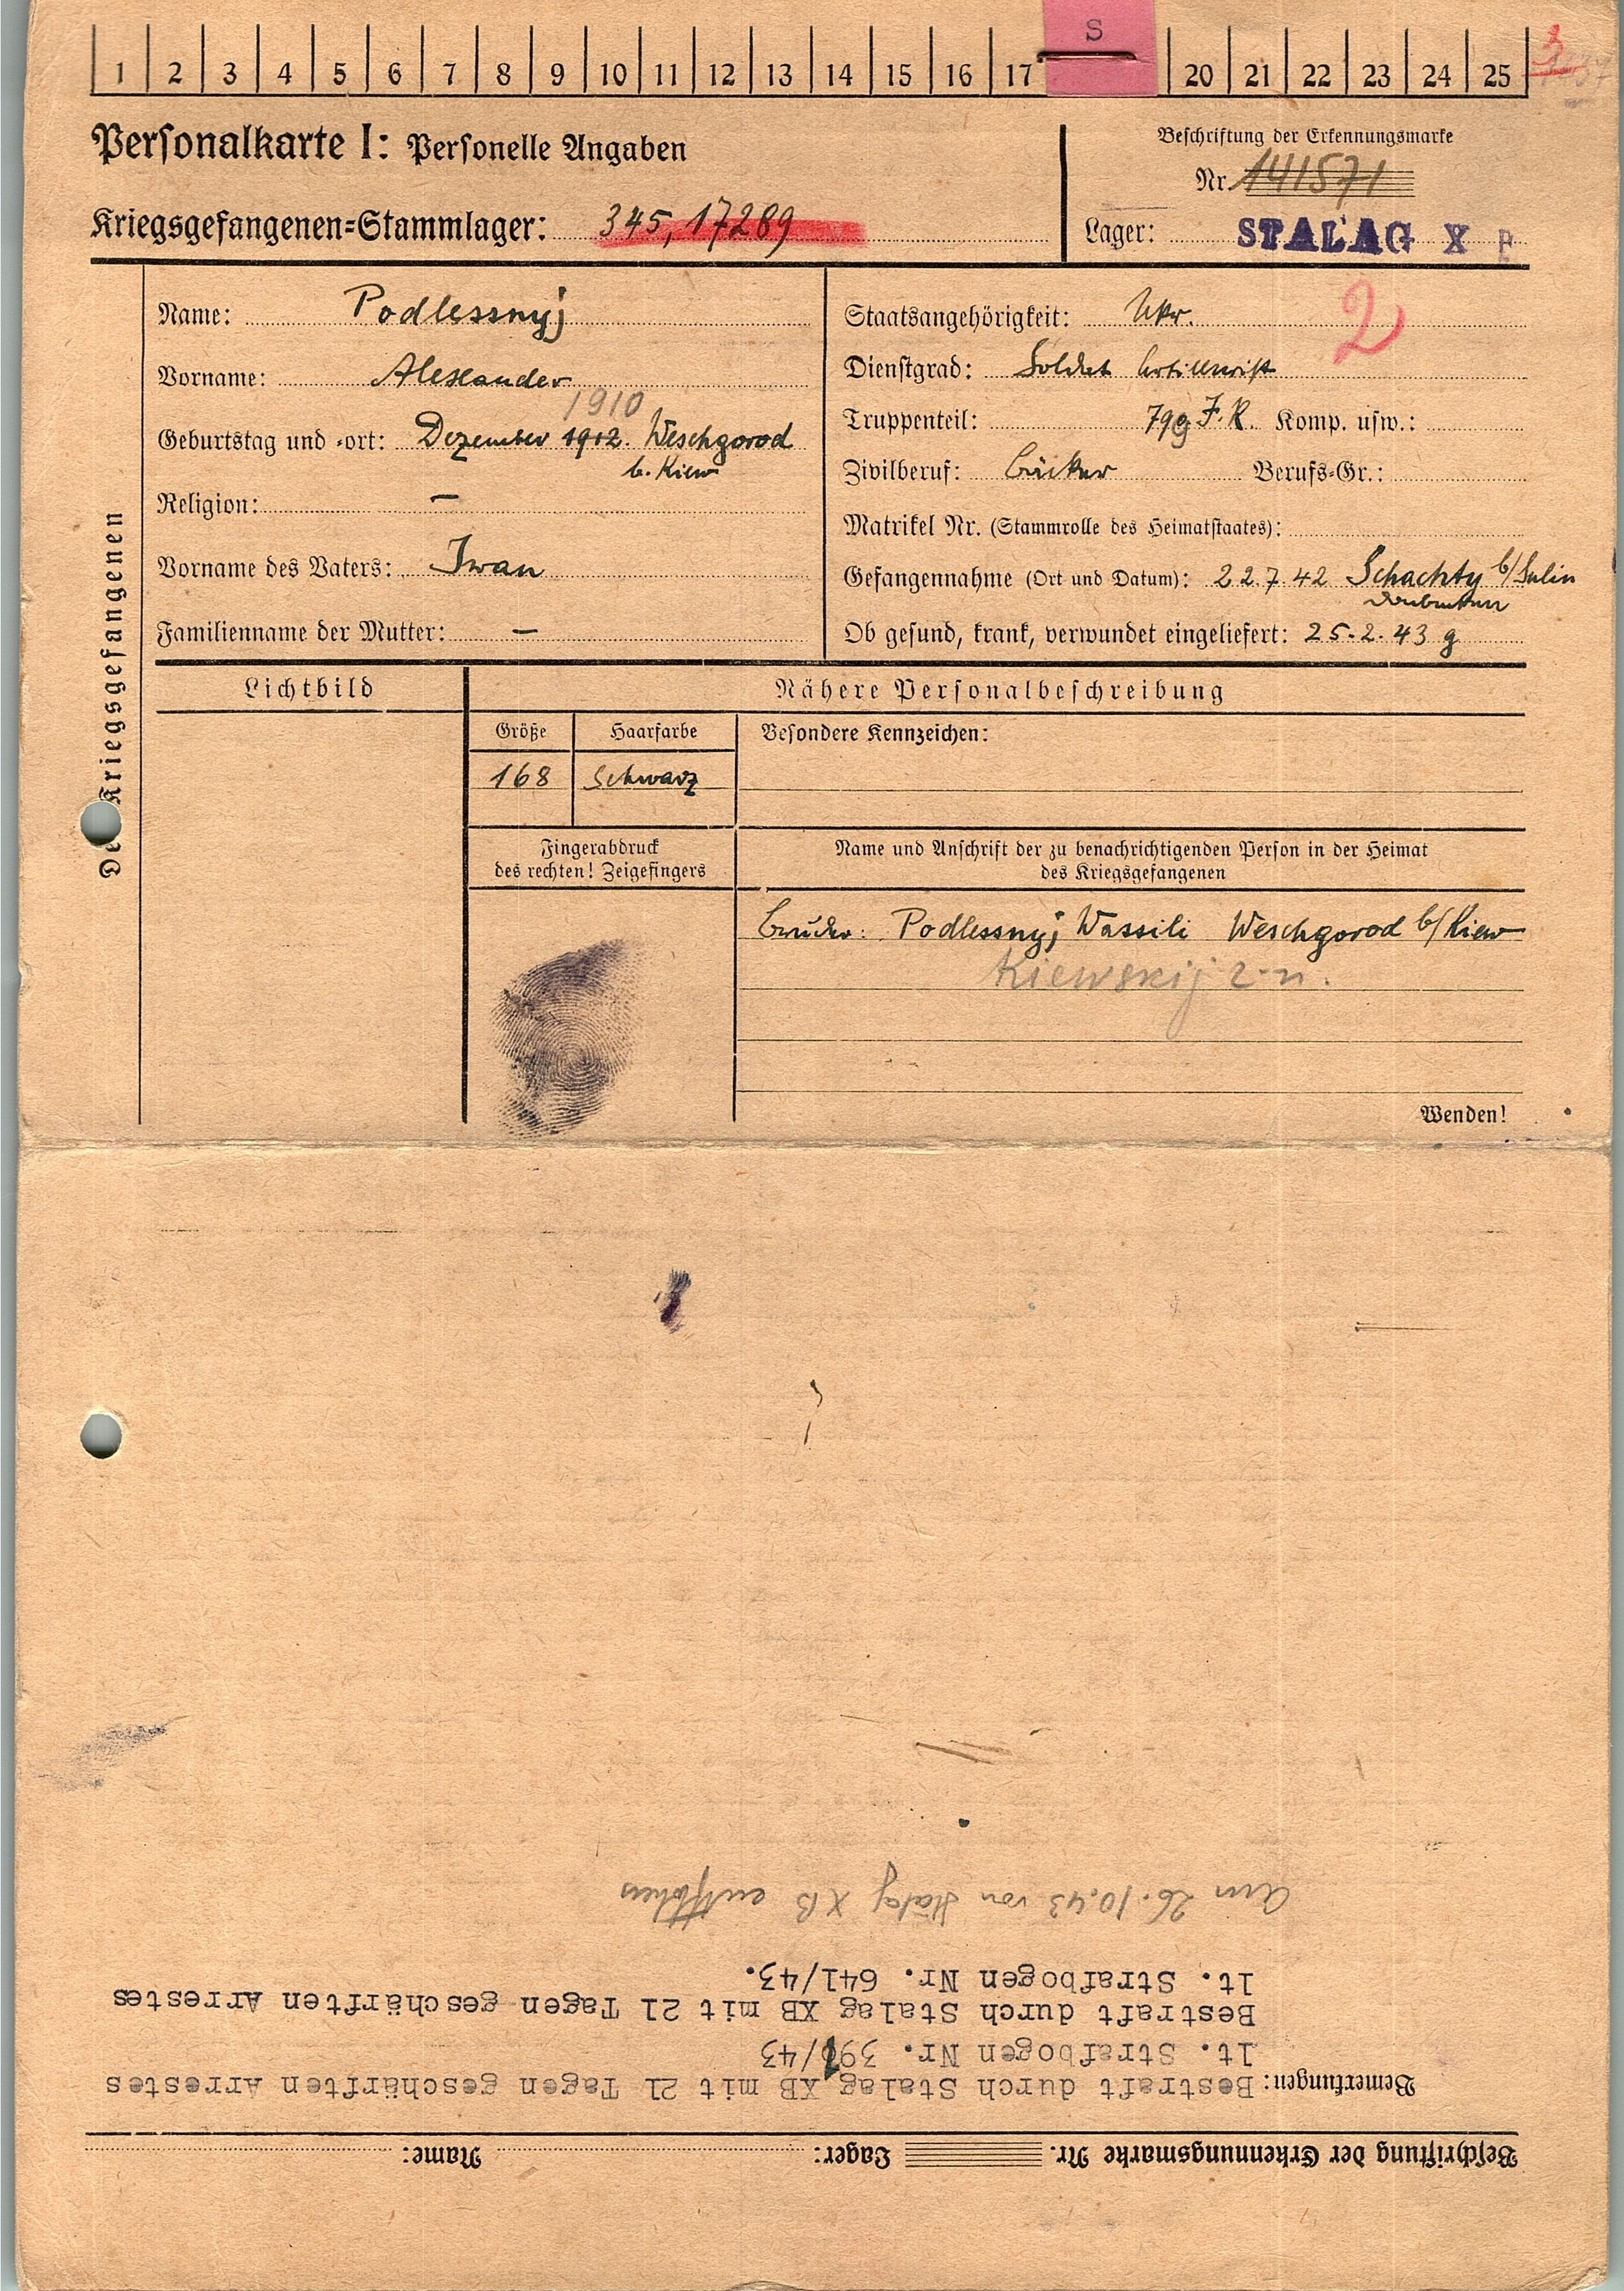 1 2 3 4 5 6 7 8 9 10 11 12 13 14 15 16 17 S 20 21 22 23 24 25
Personalkarte I: Personelle Angaben
Beschriftung der Erkennungsmarke
Nr. 141571
Kriegsgefangenen-Stammlager: 345, 17289
Lager: STALAG X B
Des Kriegsgefangenen
Name: Podlessnyj
Vorname: Alexander
1910
Geburtstag und -ort: Dezember 1912. Weschgorod
b. Kiew
Religion: —
Vorname des Vaters: Iwan
Familienname der Mutter: —
Staatsangehörigkeit: Ukr.
2
Dienstgrad: Soldat Artillerist
Truppenteil: 799 J.R. Komp. usw.:
Zivilberuf: Bäcker Berufs-Gr.:
Matrikel Nr. (Stammrolle des Heimatstaates):
Gefangennahme (Ort und Datum): 22.7.42 Schachty b/Sulin
Ob gesund, krank, verwundet eingeliefert: 25.2.43 g
Lichtbild
Nähere Personalbeschreibung
Größe Haarfarbe Besondere Kennzeichen:
168 Schwarz
Fingerabdruck
des rechten! Zeigefingers
Name und Anschrift der zu benachrichtigenden Person in der Heimat
des Kriegsgefangenen
Bruder: Podlessnyj Wassili Weschgorod b/Kiew
Kiewskij
Wenden!
Beschriftung der Erkennungsmarke Nr. Lager: Name:
Bemerkungen: Bestraft durch Stalag XB mit 21 Tagen geschärften Arrestes
lt. Strafbogen Nr. 391/43
Bestraft durch Stalag XB mit 21 Tagen geschärften Arrestes
lt. Strafbogen Nr. 641/43.
Am 26.10.43 von Stalag XB entflohen